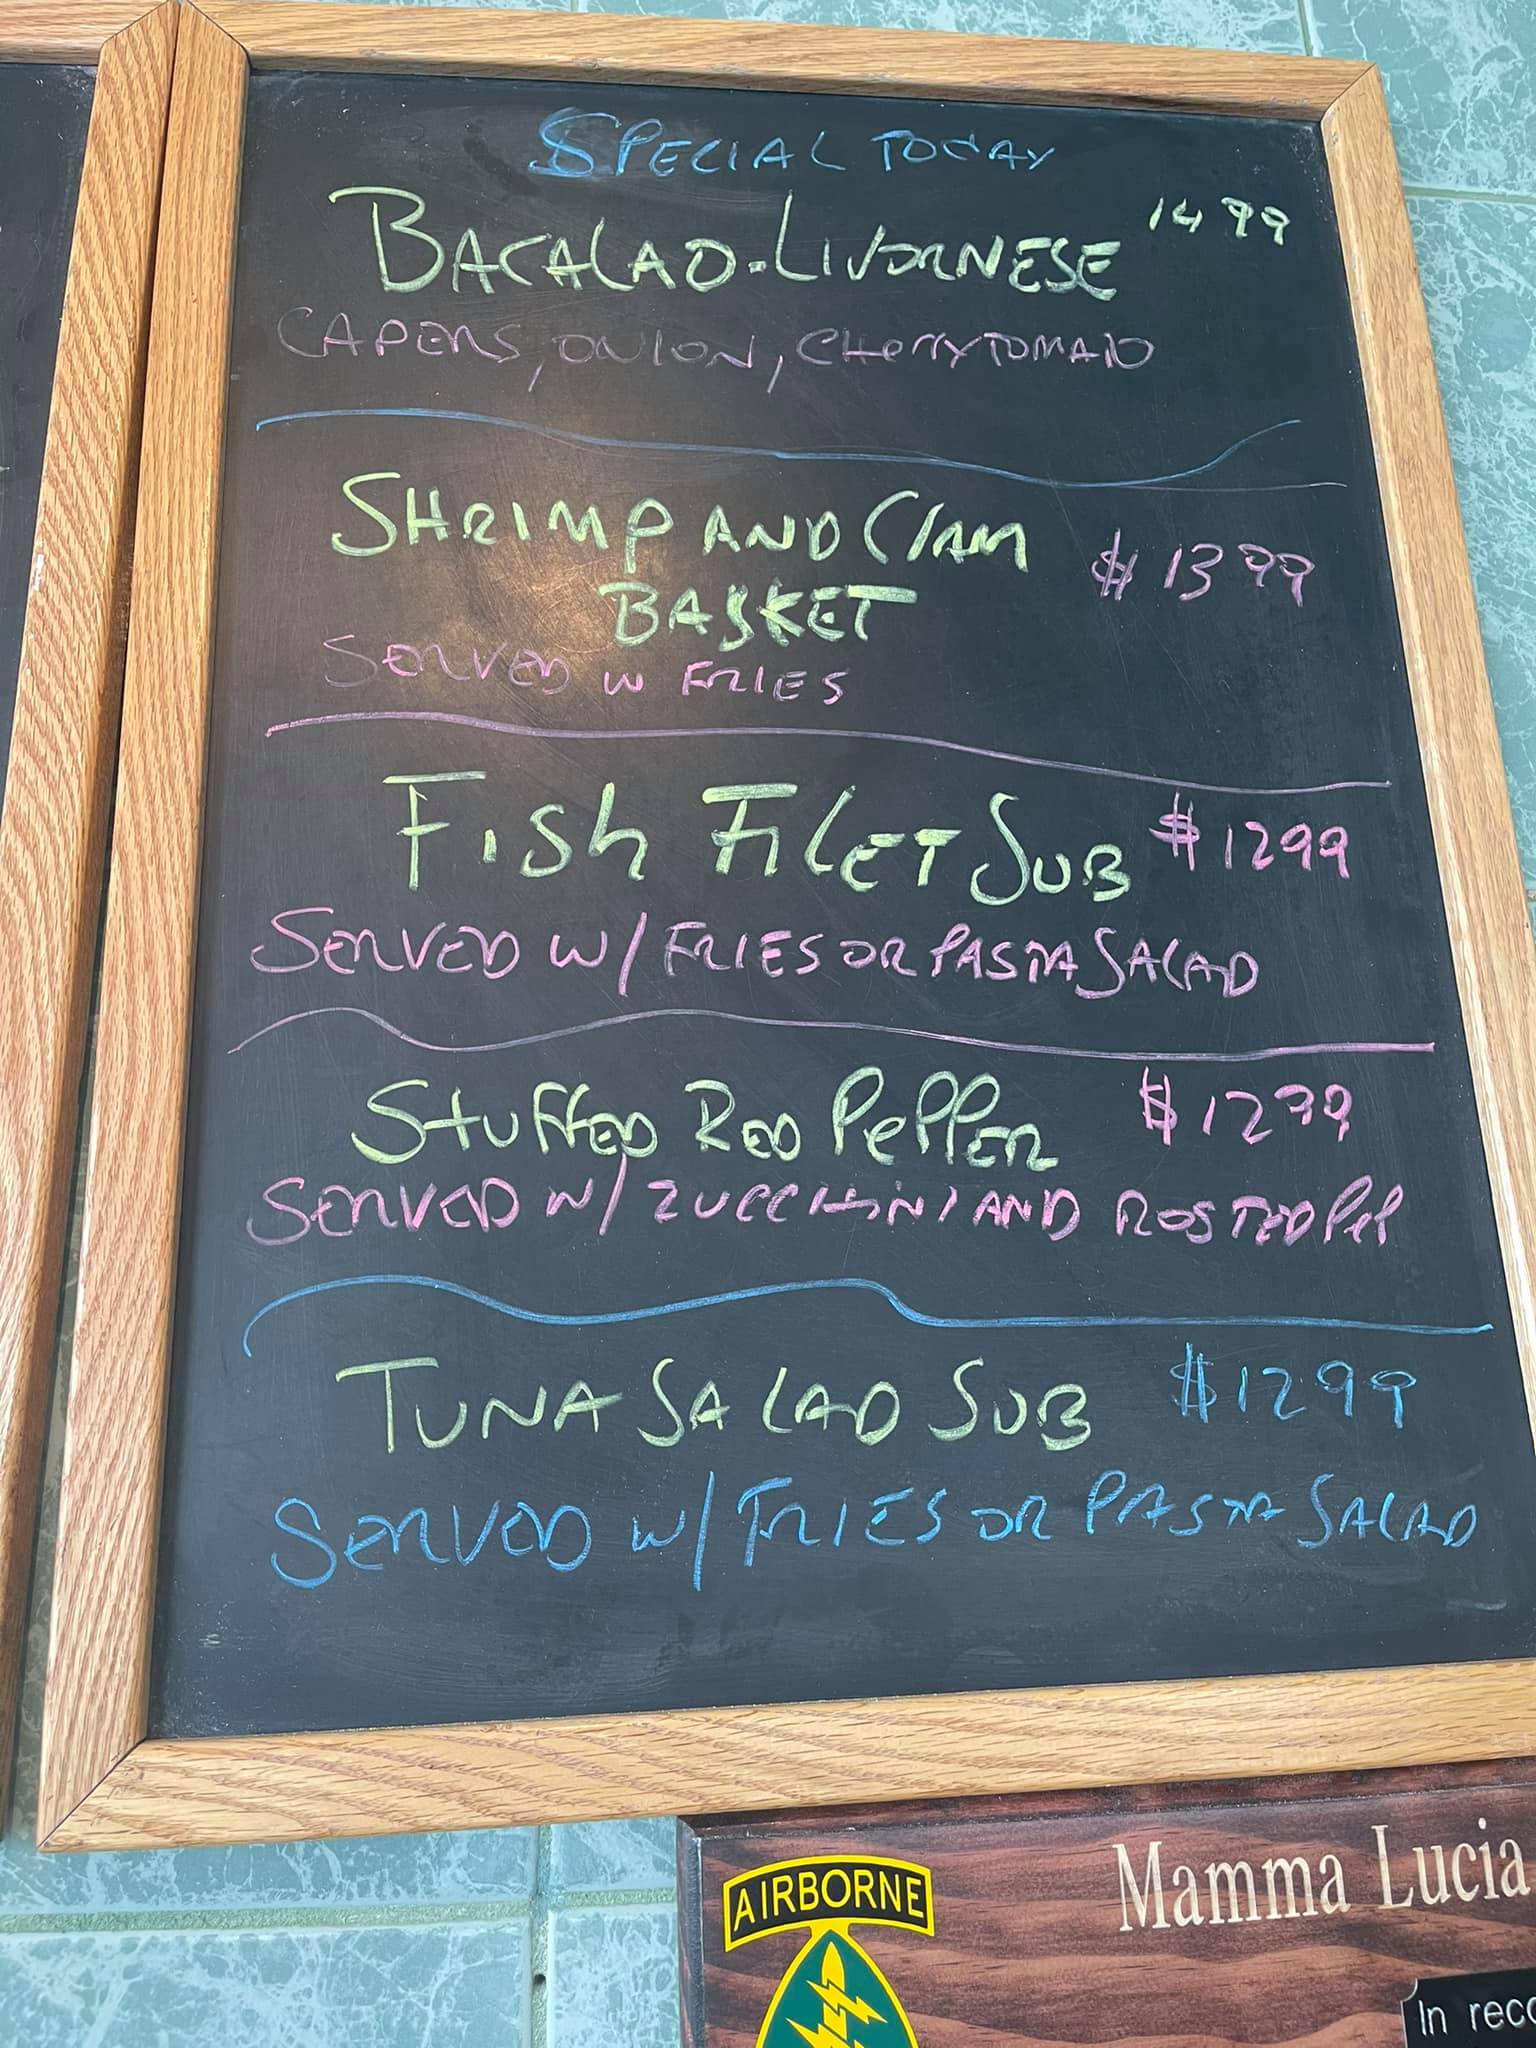 SPECIAL TODAY
BACALAO-LIVORNESE 1499
CAPERS, ONION, CHERRY TOMATO
SHRIMP AND CLAM
BASKET $1399
SERVED W FRIES
FISH FILET SUB $1299
SERVED W/ FRIES OR PASTA SALAD
STUFFED RED PEPPER $1299
SERVED W/ ZUCCHINI AND ROSTED PEP
TUNA SALAD SUB $1299
SERVED W/ FRIES OR PASTA SALAD
Mamma Lucia
AIRBORNE
In reco